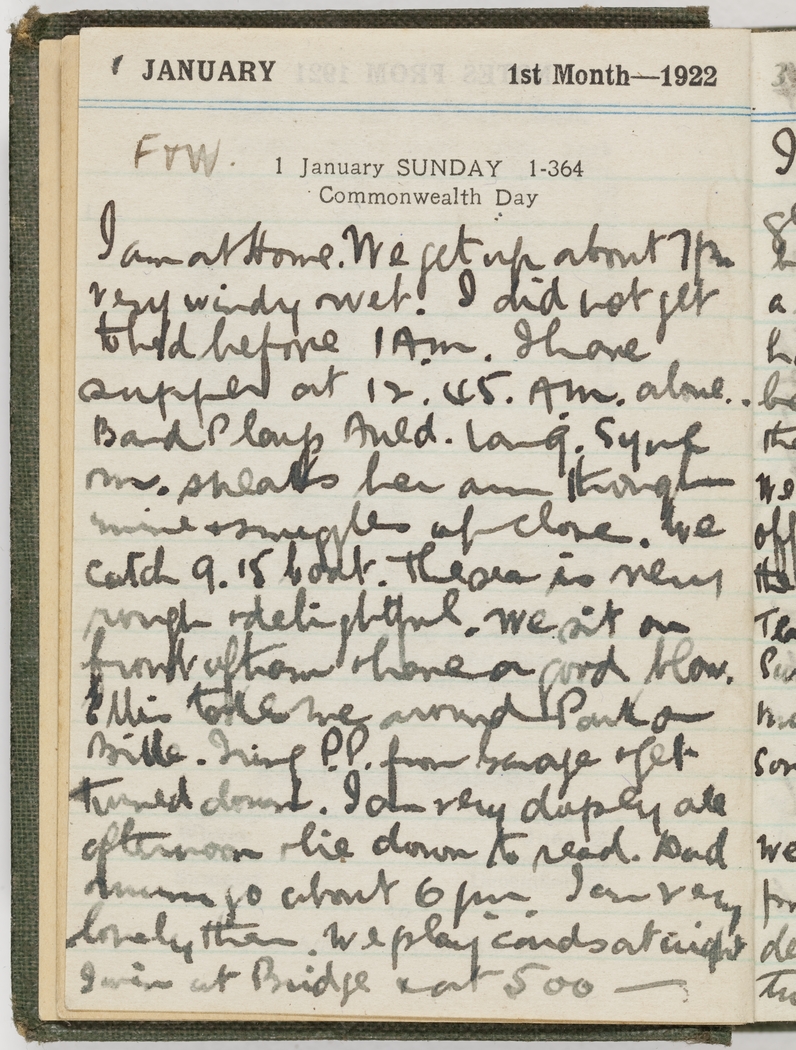 1 JANUARY 1st Month—1922
F+W. 1 January SUNDAY 1-364
Commonwealth Day
I am at Home. We get up about 7pm
very windy & wet. I did not get
to bed before 1 A.m. I have
supper at 12.45. A.m. alone..
Band Plays Auld. Lang. Syne
m. sneaks her arm through
mine & snuggles up close. We
catch 9.15 boat. The sea is very
rough & delightful. We sit on
front of them & have a good blow.
Ellis takes me around Park on
Bike. I ring P.P. from garage & get
turned down. I am very sleepy all
afternoon & lie down to read. Dad
& mum go about 6 pm I am very
lonely then. We play cards at night
I win at Bridge & at 500 —